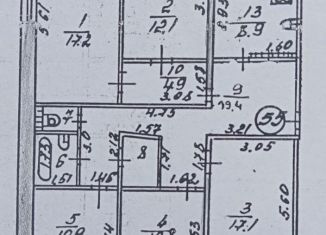 2
12.1
13
8.9
5.67
1
17.2
1.40
10
4.9
3.05
1.68
9
19.4
4.75
55
7
3.0
2.12
1.57
8
1.71
1.75
3.21
3.05
6
1.51
1.45
1.62
5
4
3
17.1
5.60